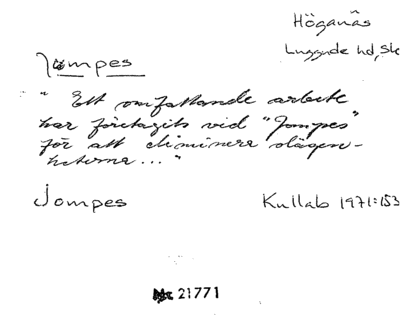 Höganäs
Luggude hd, Sk
Jompes
" Ett omfattande arbete
har företagits vid "Jompes"
för att eliminera olägen-
heterna ... "
Jompes
Kullab 1971:153
21771